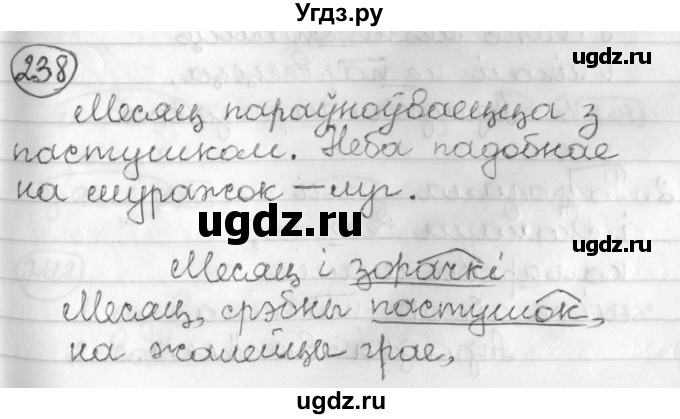 Угдз.ру
238
ugdz.ru
Месяц параўноўваецца з
пастушком. Неба падобнае
на муражок – луг.
ugdz.ru
ugdz.ru
Месяц і зорачкі
Месяц, срэбны пастушок,
на жалейцы грае,
ugdz.ru
ugdz.ru